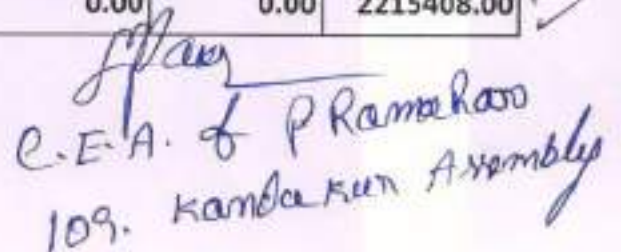 0.00 0.00 2215408.00
C.E.A. of P Ramarao
109. Kandakur Assembly